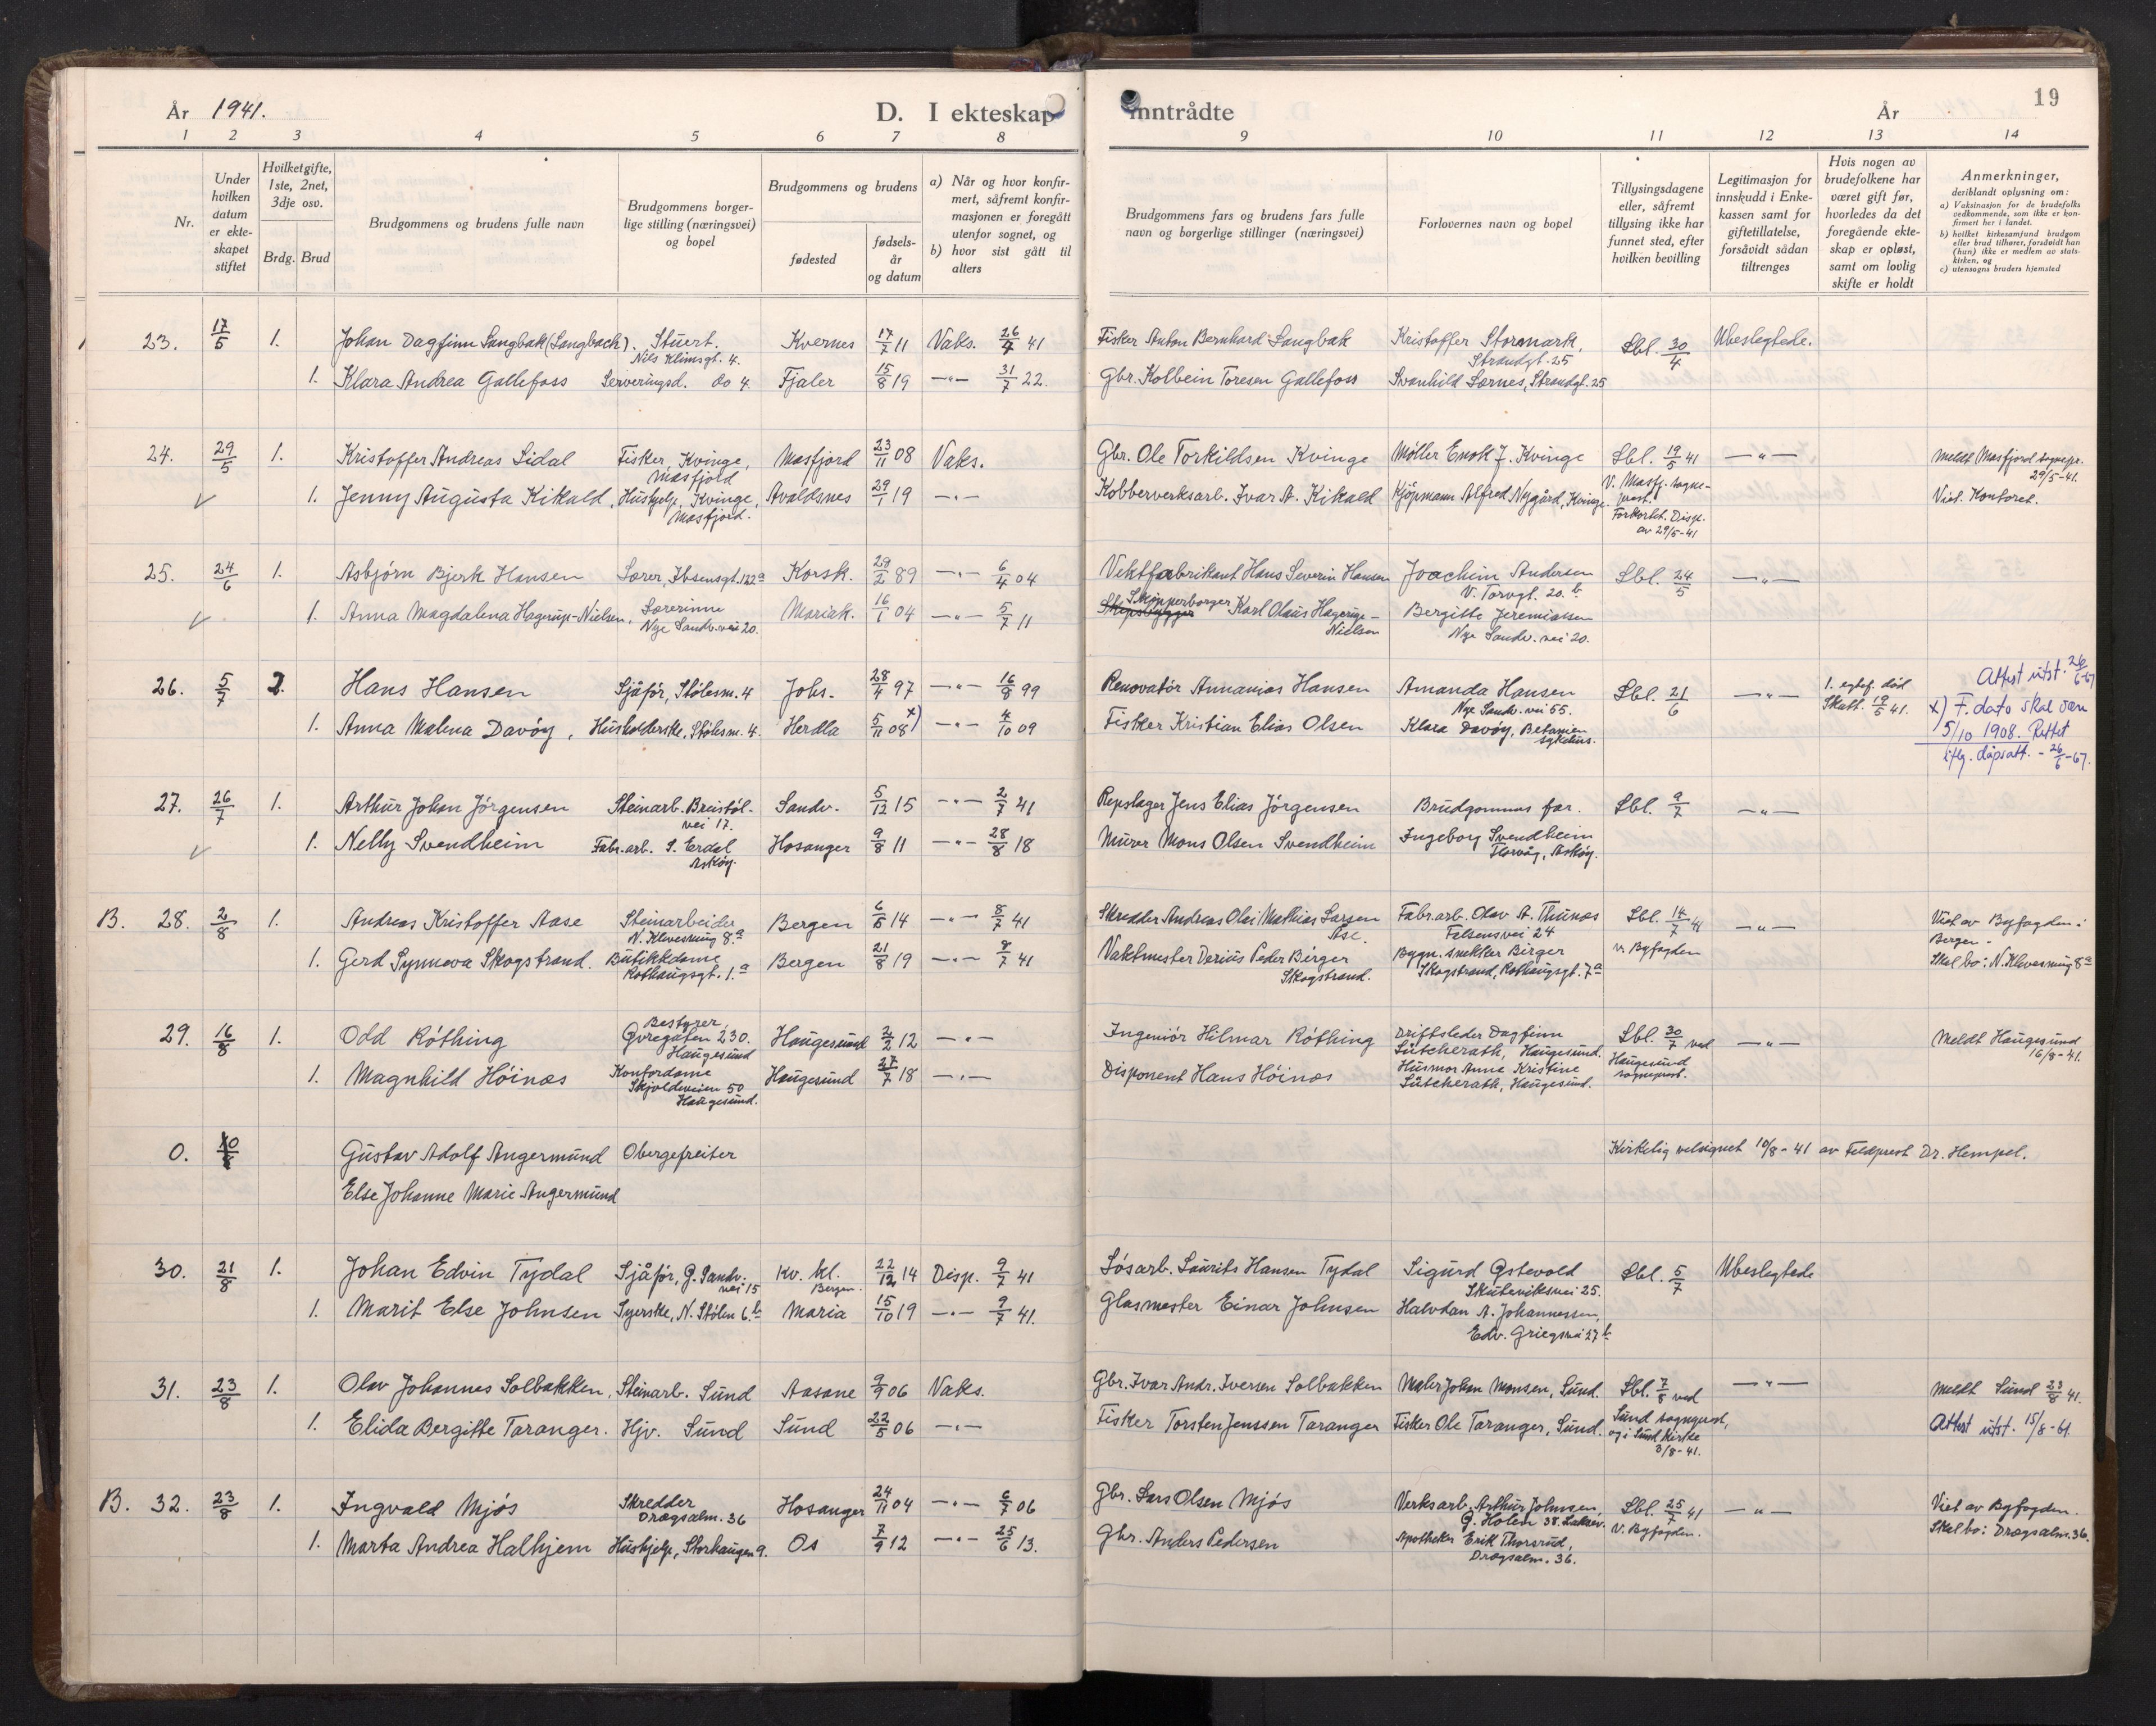 År 1941. D. I ekteskap inntrådte År 19
1 2 3 4 5 6 7 8 9 10 11 12 13 14
Nr.
Under hvilken datum er ekteskapet stiftet
Hvilket gifte, 1ste, 2net, 3dje osv.
Brdg. Brud
Brudgommens og brudens fulle navn
Brudgommens borgerlige stilling (næringsvei) og bopel
Brudgommens og brudens
fødested
fødselsår og datum
a) Når og hvor konfirmert, såfremt konfirmasjonen er foregått utenfor sognet, og
b) hvor sist gått til alters
Brudgommens fars og brudens fars fulle navn og borgerlige stillinger (næringsvei)
Forlovernes navn og bopel
Tillysingsdagene eller, såfremt tillysing ikke har funnet sted, efter hvilken bevilling
Legitimasjon for innskudd i Enkekassen samt for giftetillatelse, forsåvidt sådan tiltrenges
Hvis nogen av brudefolkene har været gift før, hvorledes da det foregående ekteskap er opløst, samt om lovlig skifte er holdt
Anmerkninger,
deriblandt oplysning om:
a) Vaksinasjon for de brudefolks vedkommende, som ikke er konfirmert her i landet.
b) hvilket kirkesamfund brudgom eller brud tilhører, forsåvidt han (hun) ikke er medlem av statskirken, og
c) utensogns bruders hjemsted
23. 17/5 1. Johan Dagfinn Langbak (Langbach). Stuert. Nils Klimsgt. 4. Kvernes 17/7 11 Vaks. 26/4 41 Fisker Anton Bernhard Langbak Kristoffer Stormark, Strandgt. 25 Lbl. 30/4 Ubeslegtede.
1. Klara Andrea Gallefoss Serveringsd. do 4. Fjaler 15/8 19 —"— 31/7 22. Gbr. Kolbein Toresen Gallefoss Svanhild Sørnes, Strandgt. 25
24. 29/5 1. Kristoffer Andreas Lidal Fisker, Kvinge, Masfjord Masfjord 23/11 08 Vaks. Gbr. Ole Torkildsen Kvinge Møller Enok J. Kvinge Lbl. 19/5 41 —"— Meldt Masfjord sognepr. 29/5-41.
1. Jenny Augusta Kikald, Hushjelp, Kvinge, Masfjord. Avaldsnes 29/1 19 —"— Kobberverksarb. Ivar A. Kikald Kjøpmann Alfred Nygård, Kvinge. V. Masfj. sogneprest. Forkortet. Disp. av 29/5-41 Viet. Kontoret.
25. 24/6 1. Asbjørn Bjerk Hansen Lærer, Ibsensgt. 122a Korsk. 29/2 89 —"— 6/4 04 Vektfabrikant Hans Severin Hansen Joachim Andersen V. Torvgt. 20. b Lbl. 24/5 —"—
1. Anna Magdalena Hagerup-Nielsen, Lærerinne Nye Sandv. vei 20. Mariak. 16/1 04 —"— 5/7 11 Skipperborger Karl Olaus Hagerup-Nielsen Bergitte Jeremiassen Nye Sandv. vei 20.
26. 5/7 2. Hans Hansen Sjåfór, Stølesm. 4 Johs. 28/4 97 —"— 16/8 99 Renovatør Annanias Hansen Amanda Hansen Nye Sandv. vei 55. Lbl. 21/6 —"— 1. egtef. død Skatt. 19/5 41. Attest utst. 26/6-67
1. Anna Malena Davøy, Husholderske, Stølesm. 4. Herdla 5/11 08 x) —"— 4/10 09 Fisker Kristian Elias Olsen Klara Davøy, Betanien sykehus. x) F. dato skal være 5/10 1908. Rettet iflg. dåpsatt. - 26/6-67.
27. 26/7 1. Arthur Johan Jörgensen Steinarb. Breistól-vei 17. Sandv. 5/12 15 —"— 2/7 41 Repslager Jens Elias Jörgensen Brudgommens far. Lbl. 9/7 —"—
1. Nelly Svendheim Fabr.arb. S. Erdal Askøy. Hosanger 9/8 11 —"— 28/8 18 Murer Mons Olsen Svendheim Ingeborg Svendheim Florvåg, Askøy.
B. 28. 2/8 1. Andreas Kristoffer Aase Steinarbeider N. Kleverung 8.a Bergen 6/5 14 —"— 8/7 41 Skredder Andreas Olai Mathias Larsen Åse. Fabr.arb. Olav A. Thunes Felsensvei 24 Lbl. 14/7 41 —"— Viet av Byfogden i Bergen.
1. Gerd Synneva Skogstrand. Butikkdame Rothaugsgt. 1.a Bergen 21/8 19 —"— 8/7 41 Vaktmester Derius Peder Birger Skogstrand. Bygn. snekker Birger Skogstrand, Rothaugsgt. 7a v. Byfogden Skal bo: N. Kleverung 8a
29. 16/8 1. Odd Róthing Bestyrer, Øvregaten 230. Haugesund Haugesund 2/2 12 —"— Ingeniór Hilmar Róthing Driftsleder Dagfinn Lütcherath, Haugesund. Lbl. 30/7 ved Haugesund sogneprest. —"— Meldt Haugesund 16/8-41.
1. Magnhild Höinæs Kontordame Skjoldsveien 50 Haugesund. Haugesund 27/7 18 —"— Disponent Hans Höinæs Husmor Anna Kristine Lütcherath, Haugesund.
0. 10/8 Gustav Adolf Angermund Obergefreiter Kirkelig velsignet 10/8-41 av Feldprest Dr. Hempel.
Else Johanne Marie Angermund
30. 21/8 1. Johan Edvin Tydal Sjåfór, G. Sandv.vei 15 Kv. kl. Bergen. 22/12 14 Disp. 9/7 41 Løsarb. Laurits Hansen Tydal Sigurd Østevold Skuteviksvei 25. Lbl. 5/7 Ubeslegtede
1. Marit Else Johnsen Syerske, N. Stølen 6.b Maria 15/10 19 —"— 9/7 41. Glasmester Einar Johnsen Halvdan A. Johannessen, Edv. Griegsvei 27 b
31. 23/8 1. Olav Johannes Solbakken, Steinarb. Sund Aasane 9/9 06 Vaks. Gbr. Ivar Andr. Iversen Solbakken Maler Johan Monsen, Sund. Lbl. 7/8 ved Sund sogneprest, og i Sund kirke 3/8-41. —"— Meldt Sund 23/8 41.
1. Elida Bergitte Taranger. Hjv. Sund Sund 22/5 06 —"— Fisker Torsten Jenssen Taranger Fisker Ole Taranger, Sund. Attest utst. 15/8-61.
B. 32. 23/8 1. Ingvald Mjós Skredder Dragsalm. 36 Hosanger 24/11 04 —"— 6/7 06 Gbr. Lars Olsen Mjós Verksarb. Arthur Johnsen, G. Holen 38. Laksev. Lbl. 25/7 41 V. Byfogden. —"— Viet av Byfogden.
1. Marta Andrea Halhjem Hushjelp, Storhaugen 9. Os 7/9 12 —"— 25/6 13. Gbr. Anders Pedersen Apotheker Erik Thorsrud, Dragsalm. 36. Skal bo: Dragsalm. 36.